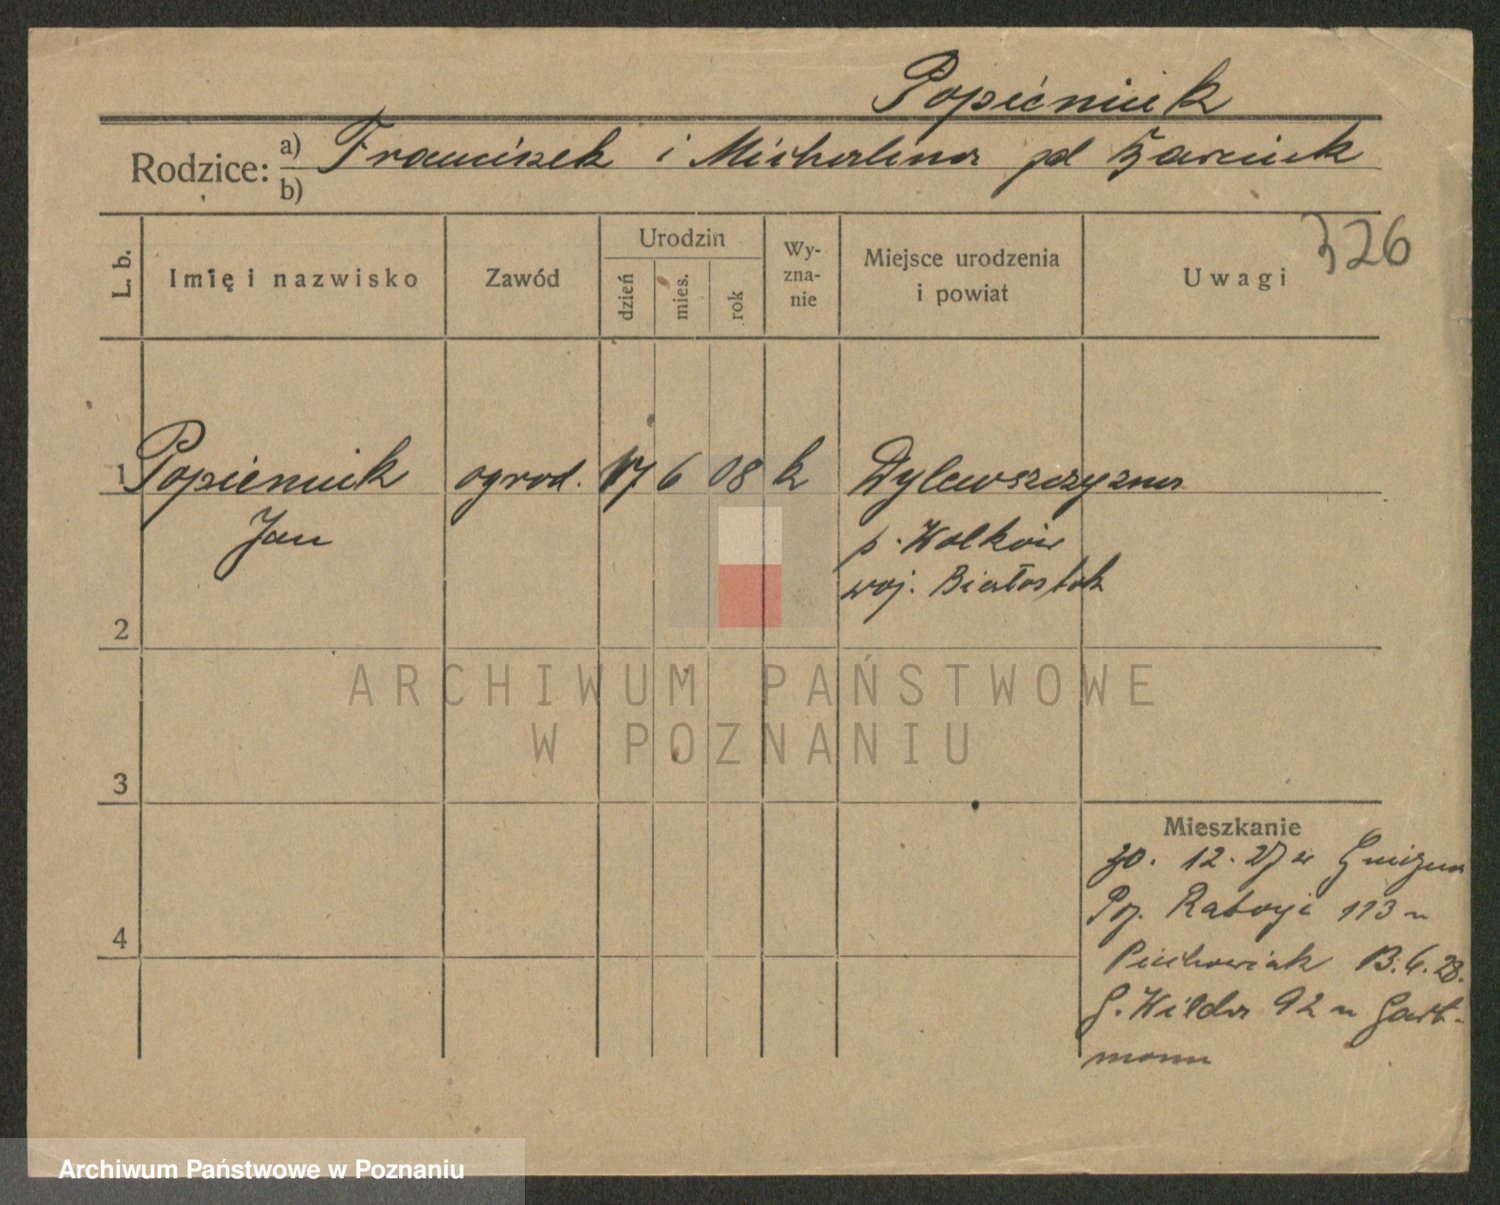 Popieniuk
Rodzice: a) Franciszek i Michalina zd
b)
326
L. b.
Imię i nazwisko
Zawód
Urodzin
dzień
mies.
rok
Wy-
zna-
nie
Miejsce urodzenia
i powiat
Uwagi
1 Popieniuk ogrod. 17 6 08 k Dylewszczyzna
Jan
p. Wołkow
woj. Białostok
2
3
4
Mieszkanie
30. 12. 27 z Gniezna
113 u
Piechowiak 13. 6. 28.
G. Wilda 92 u Gart-
mann
ARCHIWUM PAŃSTWOWE
W POZNANIU
Archiwum Państwowe w Poznaniu